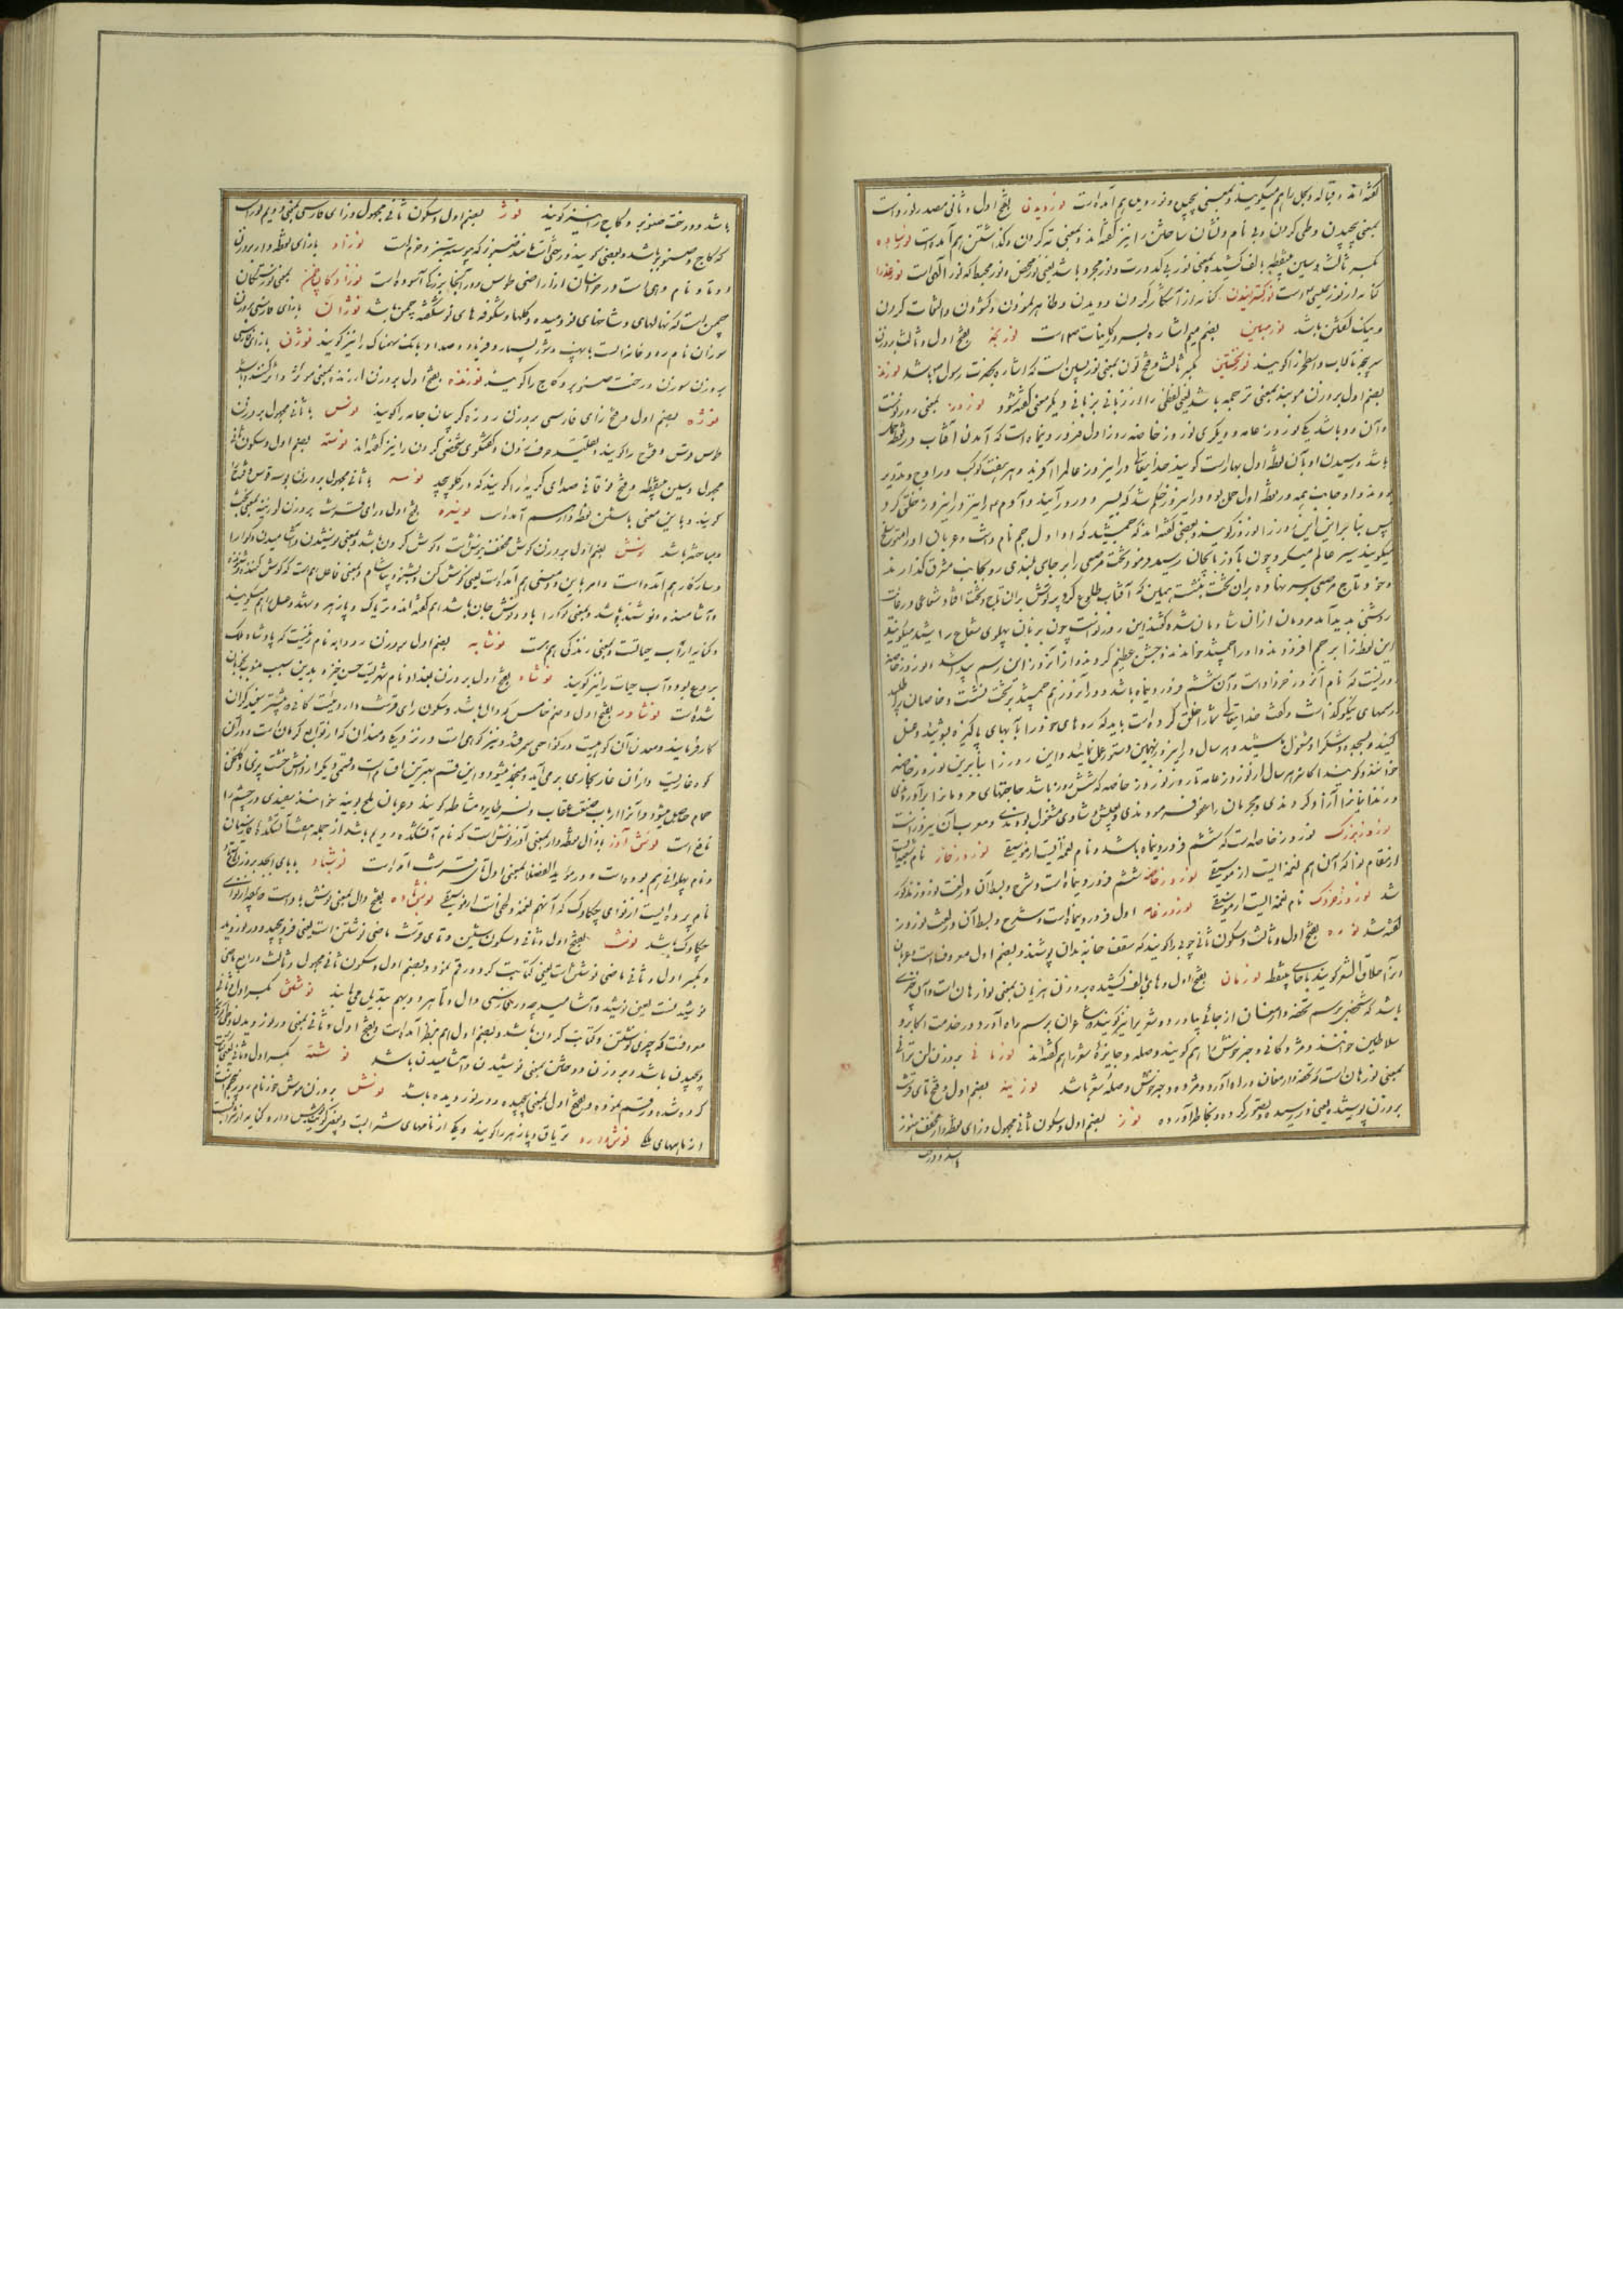 گفته‌اند و قباله و سجل را هم میگویند و بمعنی پیچش و نوردیدن هم آمده‌است نوردیدن بفتح اول و ثانی مصدر نورد است
بمعنی پیچیدن و طی کردن و بی نام و نشان ساختن را نیز گفته‌اند و بمعنی ته کردن و گذاشتن هم آمده‌است نور ساده
بکسر ثالث و سین بینقطه بالف کشیده بمعنی نور بی کدورت و نور مجرد باشد یعنی نور محض و نور محیط که نور الهی است نور عذرا
کنایه از نور عیسی است نور گستریدن کنایه از آشکار کردن و دویدن و ظاهر نمودن و گشودن و التفات کردن
و نیک گفتن باشد نور مبین بضم میم اشاره بسرور کاینات است نوربخه بفتح اول و ثالث بر وزن
سرپنجه تالاب و استخر را گویند نور نخستین بکسر ثالث و فتح نون بمعنی نور مبین است که اشاره بحضرت رسول باشد نورند
بضم اول بر وزن موبد بمعنی ترجمه باشد یعنی لغتی را از زبانی بزبانی دیگر معنی گفته شود نوروز بمعنی روز نو است
و آن دو باشد یکی نوروز عامه و دیگری نوروز خاصه روز اول فروردینماه است که آمدن آفتاب در نقطه حمل
باشد و رسیدن او بآن نقطه اول بهار است گویند خدایتعالی در این روز عالم را آفرید و هر هفت کوکب در اوج تدویر
بودند و اوجات همه در نقطه اول حمل بود در این روز حکم شد که بسیر و دور در آیند و آدم را نیز در این روز خلق کرد
پس بنابراین این روز را نوروز گویند و بعضی گفته‌اند که جمشید که او اول جم نام داشت و عربان او را منوشلخ
میگویند سیر عالم میکرد چون بآذربایجان رسید فرمود تخت مرصعی را بر جای بلندی رو بجانب مشرق گذارند
و خود تاج مرصعی بر سر نهاده بران تخت بنشست همین که آفتاب طلوع کرد پرتوش بران تاج و تخت افتاد شعاعی در غایت
روشنی پدید آمد مردمان ازان شادمان شده گفتند این روز نو است چون بزبان پهلوی شعاع را شید میگویند
این لفظ را بر جم افزودند و او را جمشید خواندند و جشن عظیم کردند و از آنروز این رسم پیدا شد و نوروز خاصه
روزیست که نام آنروز خرداد است و آن ششم فروردینماه باشد و در آنروز هم جمشید بر تخت نشست و خاصان را طلبید
رسمهای نیکو گذاشت و گفت خدایتعالی شما را خلق کرده‌است باید که روهای خود را بآبهای پاکیزه بشوئید و غسل
کنید و بسجده و شکر او مشغول باشید و هر سال در این روز بهمین دستور عمل نمائید و این روز را بنابرین نوروز خاصه
خواندند و گویند اکاسره هر سال از نوروز عامه تا نوروز خاصه که شش روز باشد حاجتهای مردمان را برآوردندی
و زندانیان را آزاد کردندی و مجرمان را عفو فرمودندی و بعیش و شادی مشغول بودندی و معرب آن نیروز است
نوروز بزرگ نوروز خاصه است که ششم فروردینماه باشد و نام نغمه ایست از موسیقی نوروز خارا نام شعبه ایست
از مقام نوا که آن هم نغمه ایست از موسیقی نوروز خاصه ششم فروردینماه است و شرح و بسط آن در لغت نوروز مذکور
شد نوروز خردک نام نغمه ایست از موسیقی نوروز عامه اول فروردینماه است و شرح و بسط آن در لغت نوروز
گفته شد نوره بفتح اول و ثالث و سکون ثانی چوبی را گویند که سقف خانه بدان پوشند و بضم اول معروف است و عربان
آنرا حلاق الشعر گویند بحای بینقطه نورهان بفتح اول و های بالف کشیده بر وزن هزیان بمعنی نوراهان است و آن چیزی
باشد که شخصی برسم تحفه و ارمغان از جائی بیاورد و شعری را نیز گویند که شاعران برسم راه آورد در خدمت اکابر و
سلاطین خوانند و مژدگانی و خبر خوش را هم گویند و صله و جایزهٔ شعر را هم گفته‌اند نورهانی بر وزن لن ترانی
بمعنی نورهان است که تحفه و ارمغان و راه آورد و مژده و خبر خوش و صلهٔ شعر باشد نوریده بضم اول و فتح تای قرشت
بر وزن پوسیده یعنی در رسیده و تصور کرده و بخاطر آورده نوز بضم اول و سکون ثانی مجهول و زای نقطه‌دار مخفف هنوز
باشد و درخت
باشد و درخت صنوبر و کاج را نیز گویند نوژ بضم اول و سکون ثانی مجهول و زای فارسی بمعنی دویم نوز است
که کاج و صنوبر باشد و بعضی گویند درختی است مانند صنوبر که پیوسته سبز و خرم است نوزاد بازای نقطه‌دار بر وزن
و نام دهی است در خراسان از اراضی طوس و در آنجا بزرگی آسوده است نوزادکان چمن بمعنی نورستگان
چمن است که نهالهای و شاخهای نو دمیده و گلها و شکوفه‌های نوشکفته چمن باشد نوژان بازای فارسی بر وزن
سوزان نام رودخانه ایست باهیبت و شور بسیار و فریاد و صدا و بانگ سهمناک را نیز گویند نوژن بازای فارسی
بر وزن سوزن درخت صنوبر و کاج را گویند نوژنده بفتح اول بر وزن ارزنده بمعنی موثر و اثر کننده باشد
نوژه بضم اول و فتح زای فارسی بر وزن روزه گریبان جامه را گویند نوس با ثانی مجهول بر وزن
طوس قوس و قزح را گویند و تقلید حرف زدن و گفتگوی شخصی کردن را نیز گفته‌اند نوسته بضم اول و سکون ثانی
مجهول و سین بینقطه و فتح فوقانی صدای گریه را گویند که در گلو پیچد نوسه با ثانی مجهول بر وزن بوسه قوس و قزح را
گویند و باین معنی با شین نقطه‌دار هم آمده‌است نوسره بفتح اول و رای قرشت بر وزن لوزینه بمعنی بحث
و مباحثه باشد نوش بضم اول بر وزن گوش مخفف نیوش است و گوش کردن باشد و بمعنی نوشیدن و آشامیدن و گوارا
و سازگار هم آمده‌است و امر باین معنی هم آمده‌است یعنی گوش کن و بشنو و بیاشام و بمعنی فاعل هم است که گوش کننده و شنونده
و آشامنده و نوشنده باشد و بمعنی گوارا باد و نوش جان باشد هم گفته‌اند و تریاک و پازهر و شهد و عسل را هم میگویند
و کنایه از آب حیات است و بمعنی زندگی هم هست نوشابه بضم اول بر وزن رودابه نام زنیست که پادشاه ملک
بردع بود و آب حیات را نیز گویند نوشاد بفتح اول بر وزن بغداد نام شهریست حسن خیز و بدین سبب منسوب بخوبان
شده‌است نوشادر بفتح اول و ضم خامس که دال باشد و سکون رای قرشت داروئیست کانی و بیشتر سفیدگران
کار فرمایند و معدن آن کوهیست در نواحی سمرقند و نیز کوهی است در نزدیک دمندان که از توابع کرمان است و در آن
کوه غاریست و از آن غار بخاری بر می‌آید و منجمد میشود و این قسم بهترین اقسام است و قسمی دیگر از داش خشت پزی و گلخن
حمام حاصل میشود و آنرا ارباب صنعت عقاب و نسر طایر و مشاطه گویند و عربان ملح بوتیه خوانند سفیدی در چشم را
نافع است نوش آذر بازال نقطه‌دار بمعنی آذر نوش است که نام آتشکده دویم باشد از جمله هفت آتشکده فارسیان
و نام پهلوانی هم بوده‌است و در مؤید الفضلا بمعنی اول تای قرشت آمده‌است نوشباد بابای ابجد بر وزن
نام پرده ایست از نوای چکاوک که آنهم نغمه و لحنی است از موسیقی نوش‌باده بفتح دال بمعنی نوش باد است
چکاوک باشد نوشت بفتح اول و ثانی و سکون شین و تای قرشت ماضی نوشتن است یعنی فرو پیچید و درنوردید
و بکسر اول و ثانی ماضی نوشتن است یعنی کتابت کرد و رقم نمود و بضم اول و سکون ثانی مجهول و ثالث و رابع ماضی
نوشیدنست یعنی نوشید و آشامید چه در فارسی دال و تا هر دو بهم تبدیل می‌یابند نوشتن بکسر اول و ثانی
معروفست که چیزی نوشتن و کتابت کردن باشد و بضم اول هم بنظر آمده‌است و بفتح اول و ثانی بمعنی درنوردیدن و طی کردن
و پیچیدن باشد و بر وزن دوختن بمعنی نوشیدن و آشامیدن باشد نوشته بکسر اول و ثانی یعنی کتابت
کرده شده و رقم نموده و بفتح اول بمعنی پیچیده و درنوردیده باشد نوش بر وزن موش خور نام روز پنجم است
از ماههای ملکی نوشدارو تریاق و پازهر را گویند و یکی از نامهای شراب است و بعضی گویند داروئی که کنایه از شراب است